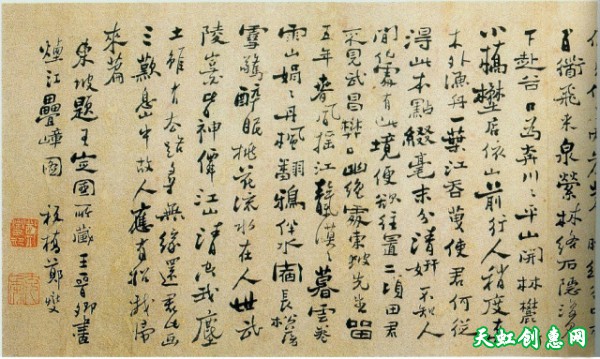 飛来泉縈林络石隱
下赴谷口為奔川〻平山開林麓
小橋野店依山前行人稍度喬
木外漁舟一葉江吞天使君何從
得此本點綴毫末分清妍不知人
間何處有此境便欲往置二頃田君
不見武昌樊口幽絕處東坡先生留
五年春風摇江天漠〻暮雲卷
雨山娟〻丹楓翻鴉伴水宿長松落
雪驚醉眠桃花流水在人世武
陵豈皆神僊江山清空我塵
土雖有去路尋無緣還君此画
三歎息山中故人應有招我歸
來篇
東坡題王定國所藏王晉卿畫
煙江疊嶂圖 板橋鄭燮
天虹创惠网